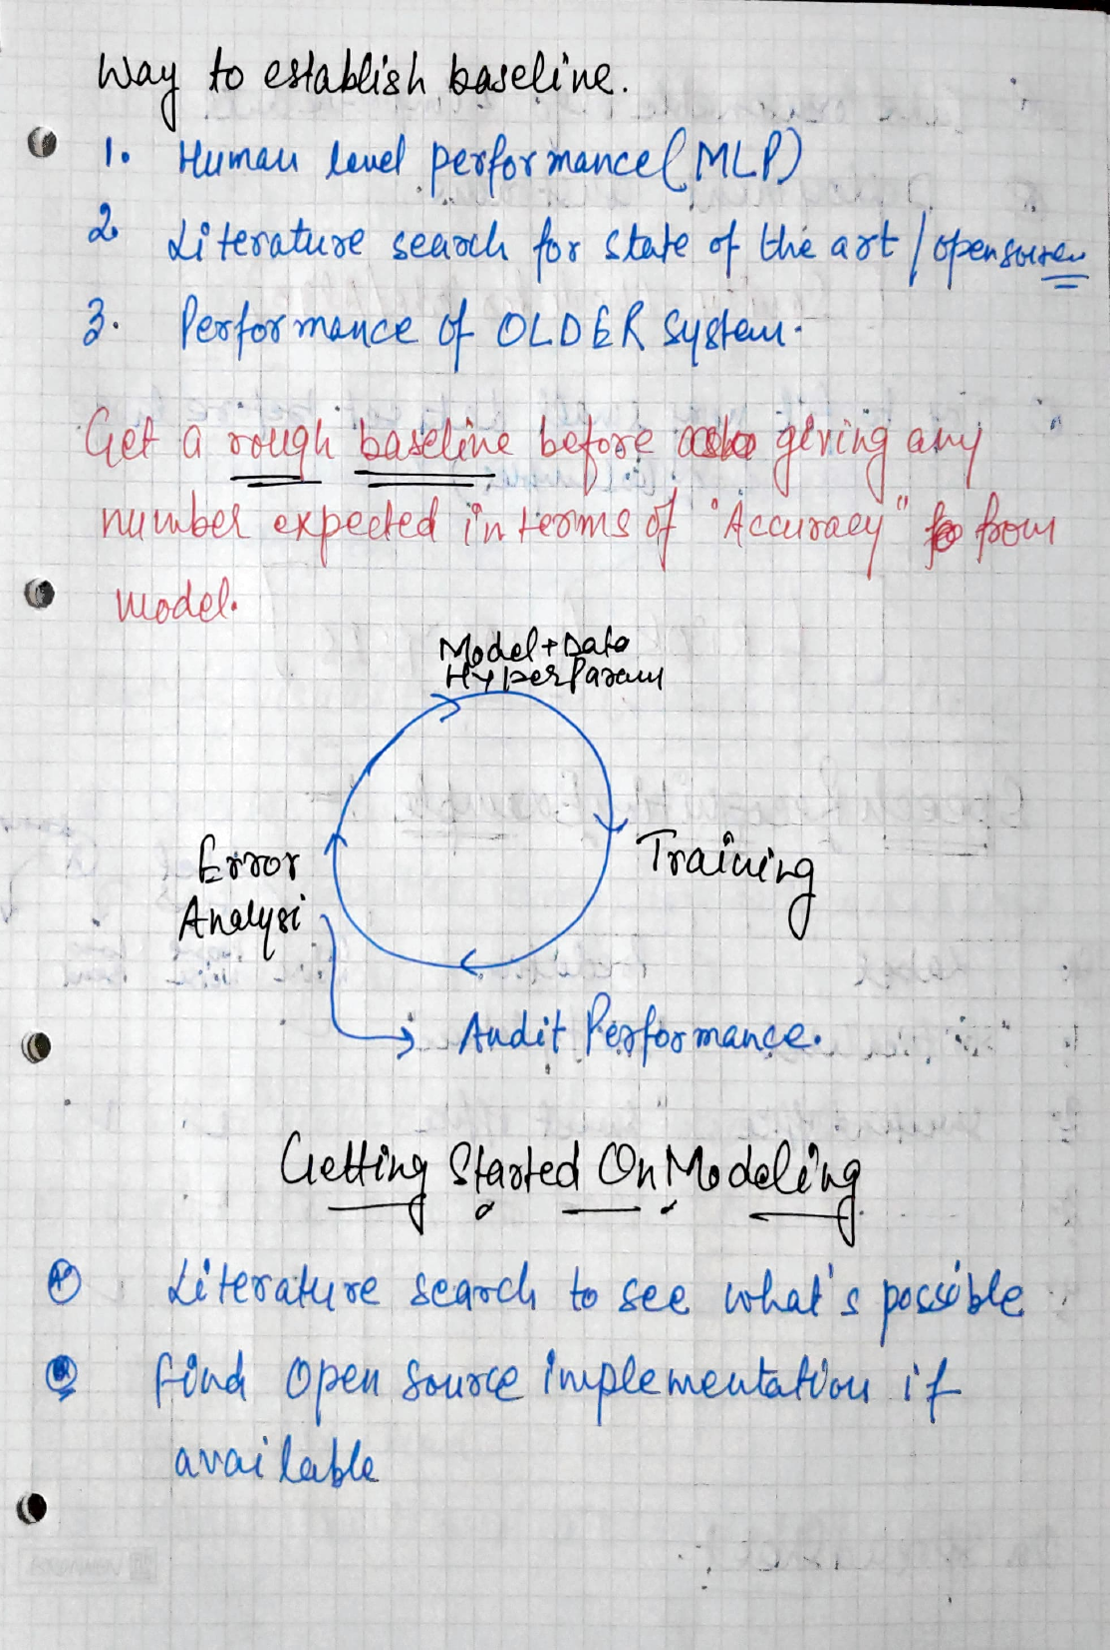 Way to establish baseline.
1. Human level performance (MLP)
2. Literature search for state of the art / opensource
3. Performance of OLDER system.
Get a rough baseline before giving any
number expected in terms of "Accuracy" from
model.
Model + Data
HyperParam
Error
Analysi
Training
Audit Performance.
Getting Started On Modeling
Literature search to see what's possible
find open source implementation if
available